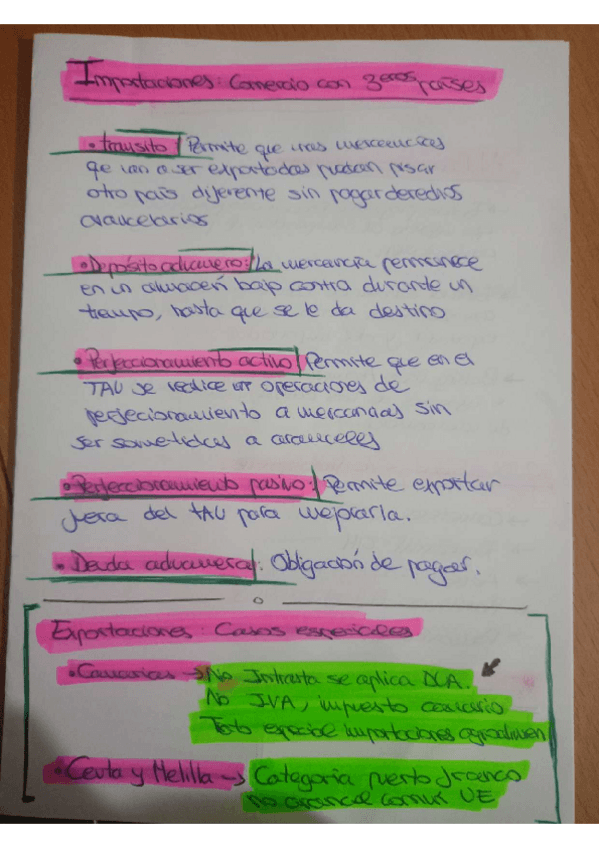 Importaciones: Comercio con 3eros países
• tránsito: Permite que unas mercancías
qe van a ser exportadas puedan pisar
otro país diferente sin pagar derechos
arancelarios
• Depósito aduanero: La mercancía permanece
en un almacén bajo contra durante un
tiempo, hasta que se le da destino
• Perfeccionamiento activo: Permite que en el
TAU se realice operaciones de
perfecionamiento a mercancias sin
ser sometidas a aranceles
• Perfeccionamiento pasivo: Permite exportar
fuera del TAU para mejorarla.
• Deuda aduanera: Obligación de pagar.
Exportaciones: Casos especiales
• Canarias → No Intrasta se aplica DUA.
No IVA, impuesto canario
Trato especial importaciones agroalimen
• Ceuta y Melilla → Categoría puerto franco
no arancel común UE